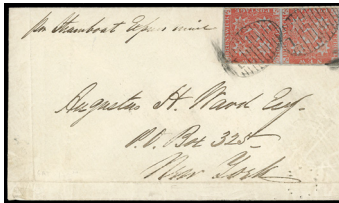 per Steamboat Express mail
Augustus H. Ward Esq.
P.O. Box 325
New York